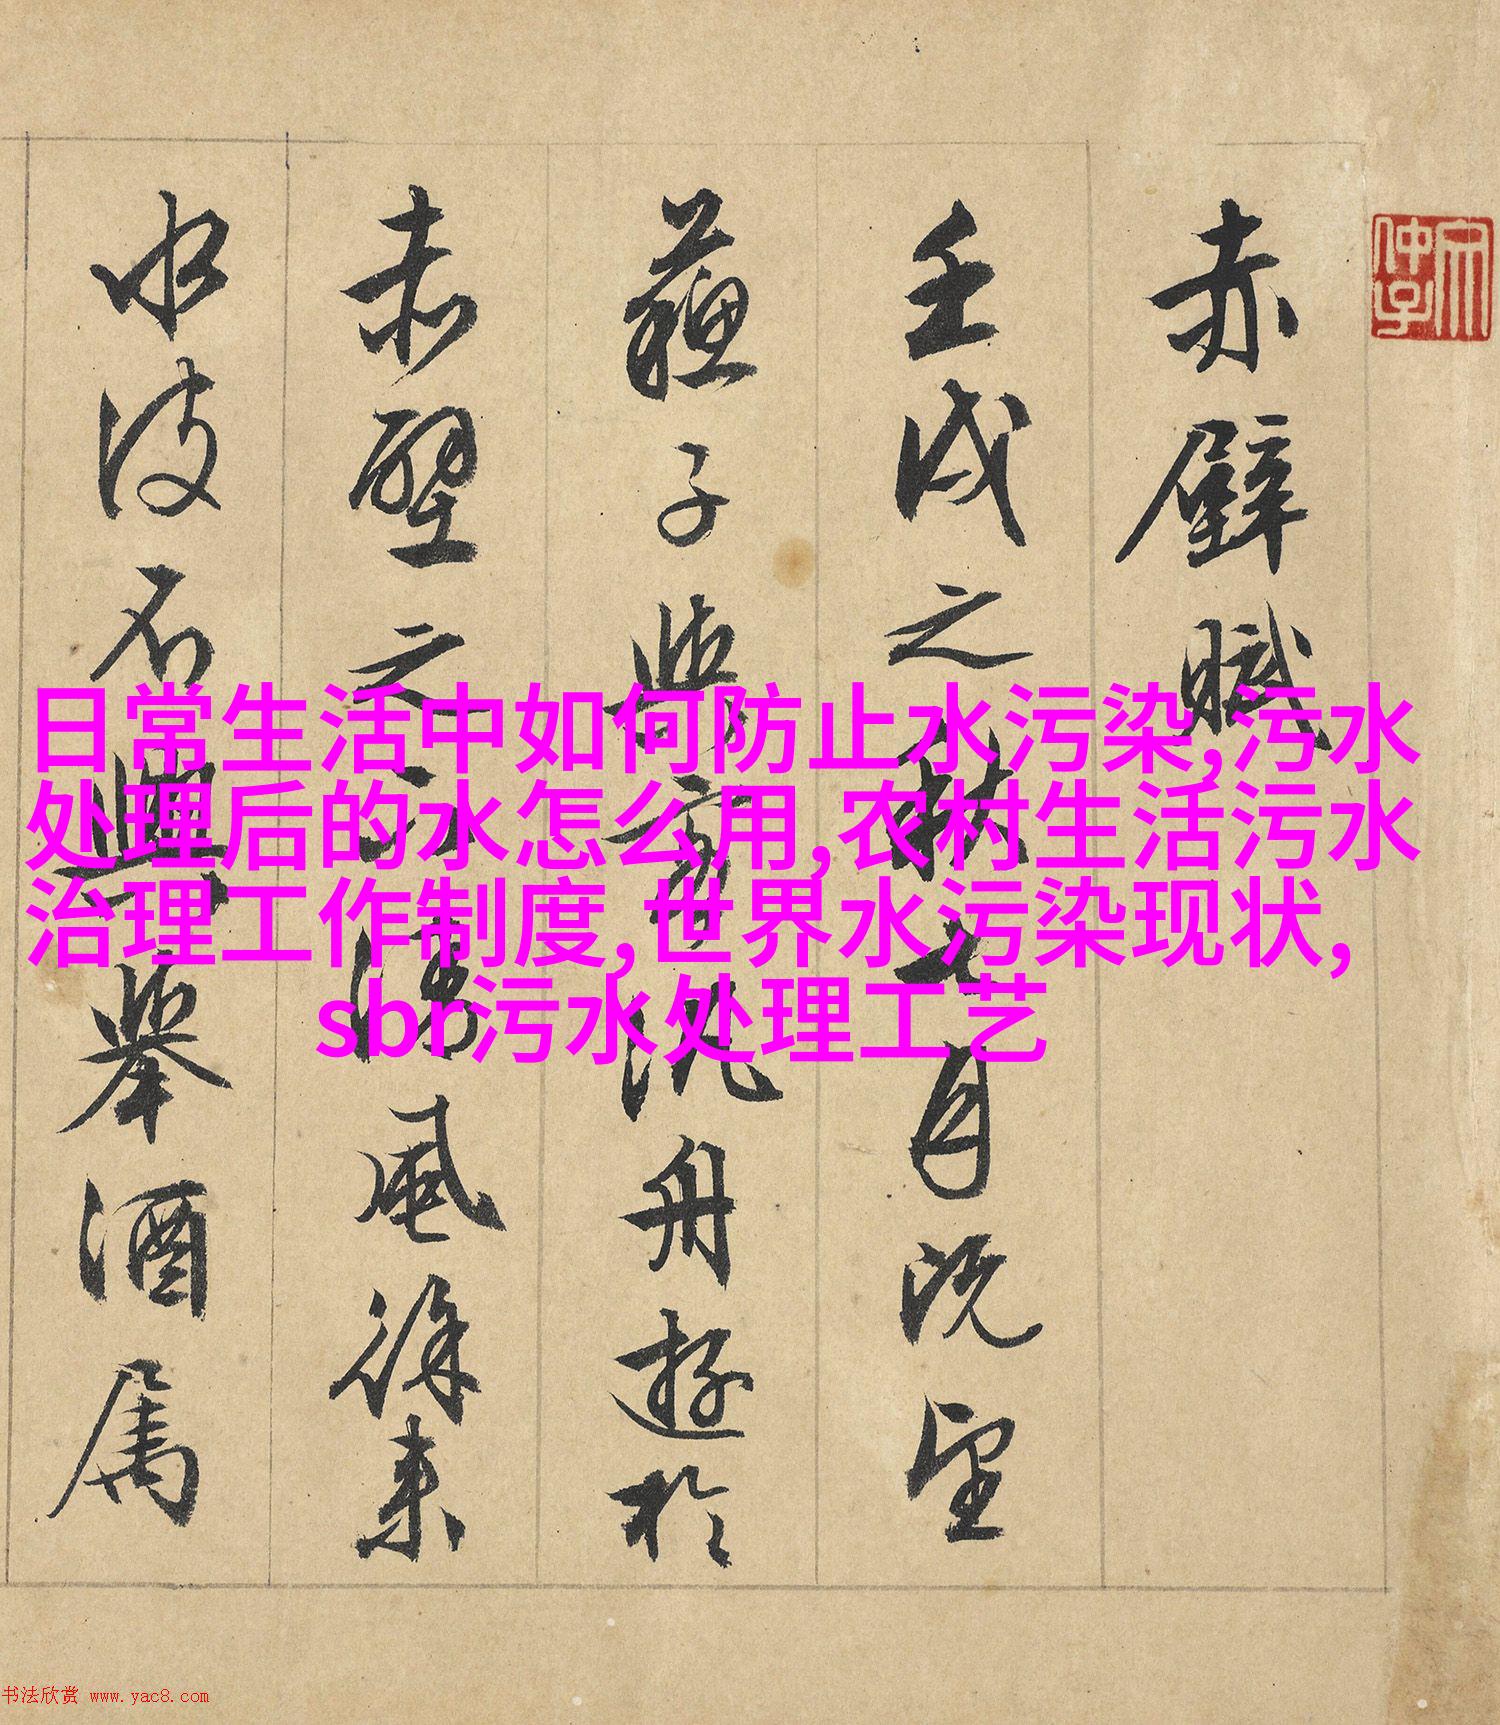 赤壁賦
壬戌之秋七月既望
蘇子與客汎舟遊於
赤壁之下清風徐来
水波不興舉酒屬
日常生活中如何防止水污染,污水
处理后的水怎么用,农村生活污水
治理工作制度,世界水污染现状,
sbr污水处理工艺
书法欣赏 www.yac8.com